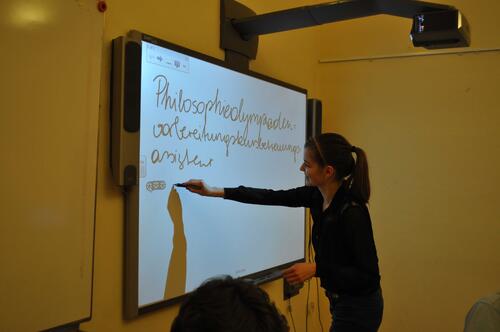 Philosophieolympiaden=
vorbereitungskursbetreuungs
assistent